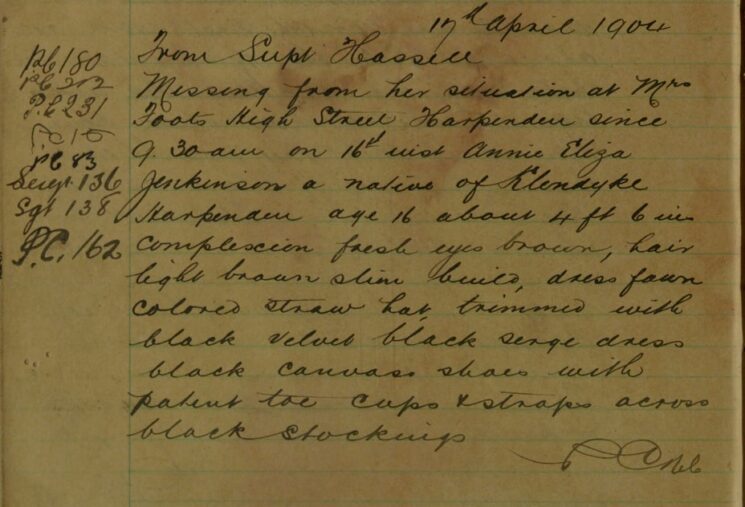 17th April 1904
From Supt Hassell
Missing from her situation at Mrs
Foots High Street Harpenden since
9.30am on 16th inst Annie Eliza
Jenkinson a native of Klondyke
Harpenden age 16 about 4 ft 6 in
complexion fresh eyes brown, hair
light brown slim build, dress fawn
colored straw hat, trimmed with
black velvet black serge dress
black canvass shoes with
patent toe caps & straps across
black stockings
PC 180
PC 202
P.C 231
PC 83
Sergt. 136
Sgt 138
P.C. 162